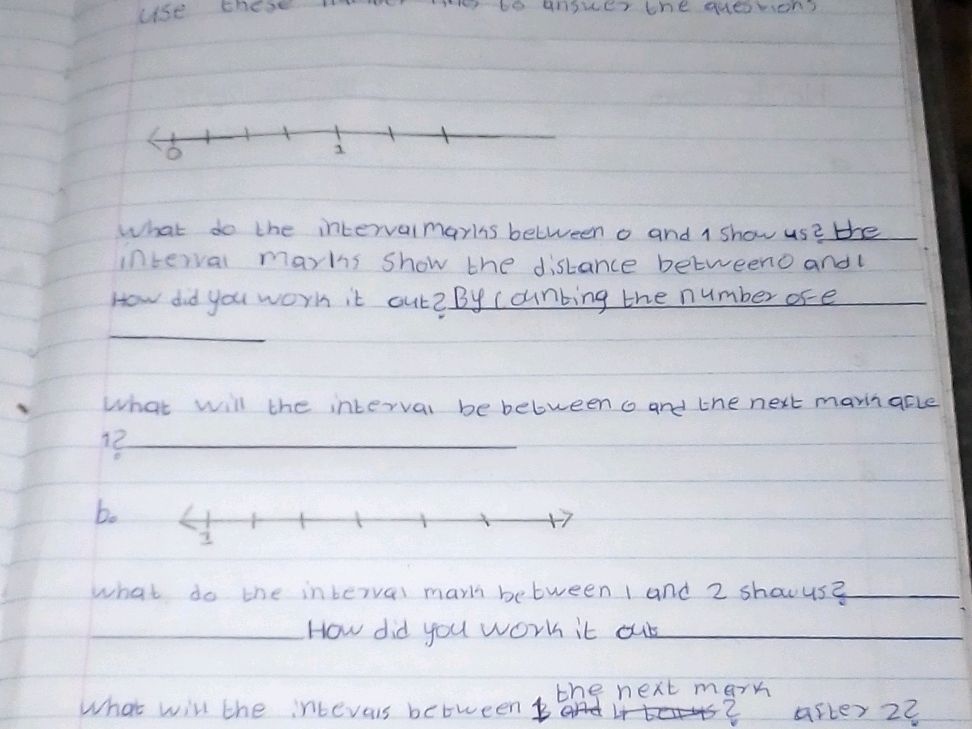 use these number lines to answer the questions
0 1
What do the interval marks between 0 and 1 show us? the
interval marks show the distance between 0 and 1
How did you work it out? By counting the number of e
What will the interval be between 0 and the next mark afte
1?
b.
1
what do the interval mark between 1 and 2 show us?
How did you work it out
the next mark
What will the intevals between 1 and 4 after 2?